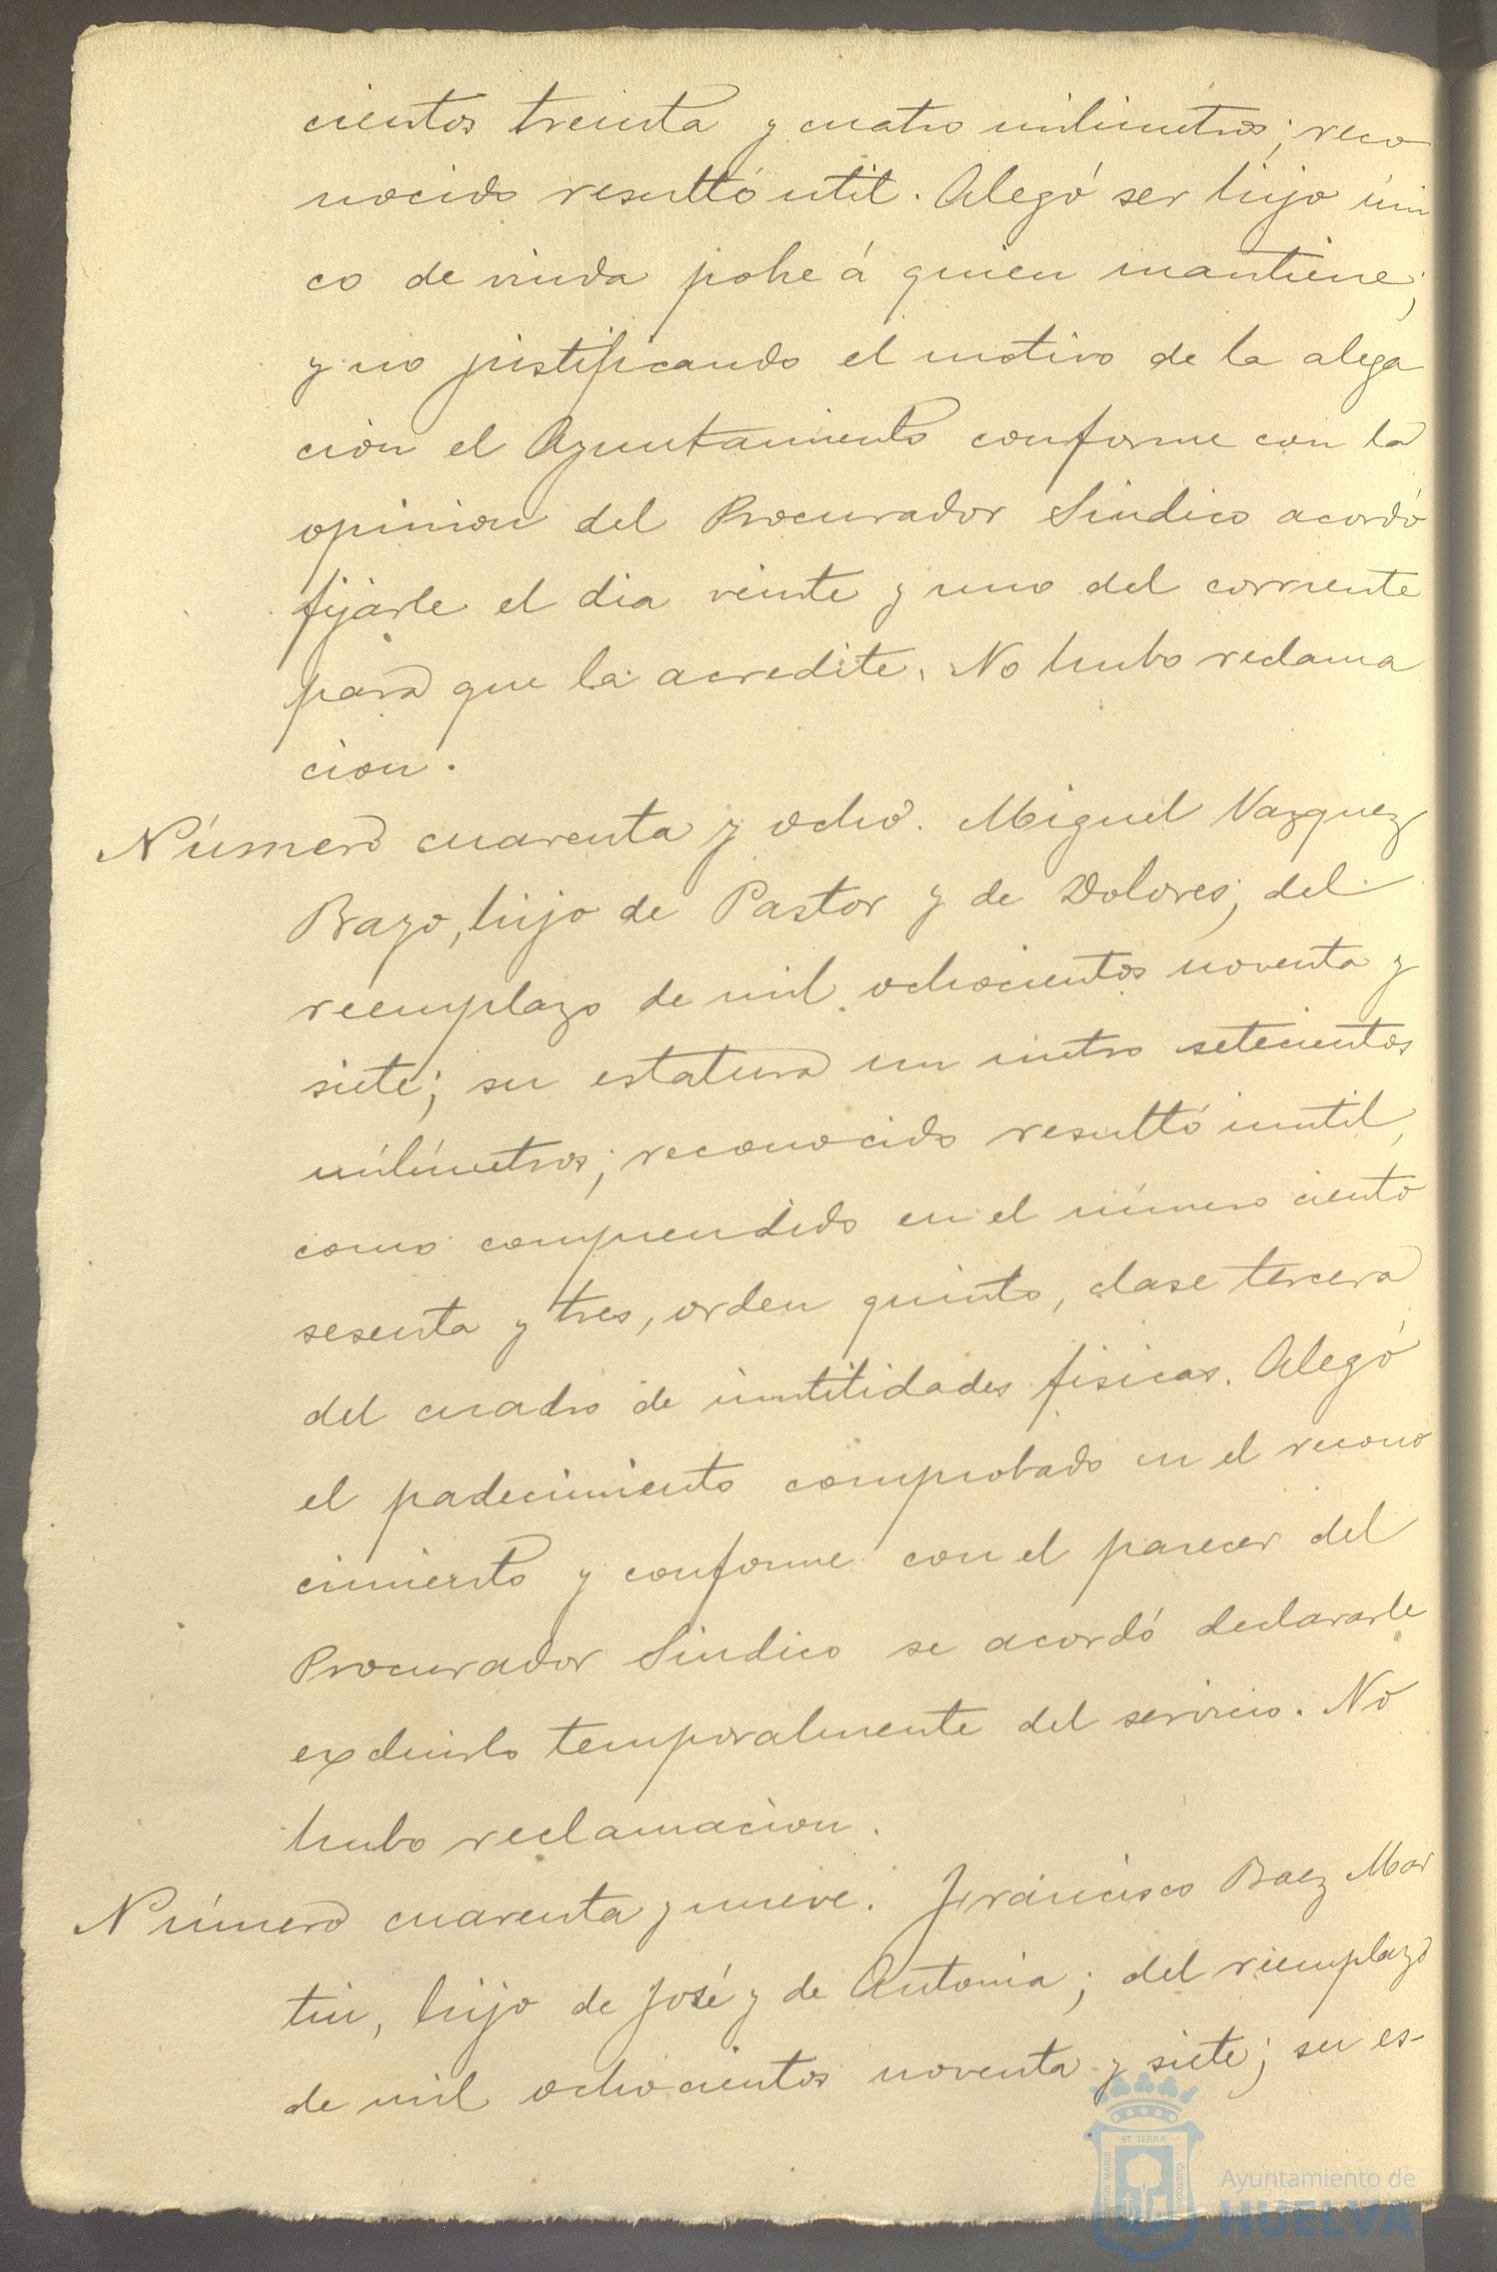 cientos treinta y cuatro milimetros; reco
nocido resultó util. Alegó ser hijo úni
co de viuda pobre á quien mantiene;
y no justificando el motivo de la alega
cion el Ayuntamiento conforme con la
opinion del Procurador Sindico acordó
fijarle el dia veinte y uno del corriente
para que la acredite. No hubo reclama
cion.
Número cuarenta y ocho. Miguel Vazquez
Bazo, hijo de Pastor y de Dolores; del
reemplazo de mil ochocientos noventa y
siete; su estatura un metro setecientos
milímetros; reconocido resultó inutil,
como comprendido en el número ciento
sesenta y tres, orden quinto, clase tercera
del cuadro de inutilidades fisicas. Alegó
el padecimiento comprobado en el recono
cimiento y conforme con el parecer del
Procurador Sindico se acordó declararle
excluirlo temporalmente del servicio. No
hubo reclamacion.
Número cuarenta y nueve. Francisco Baez Mar
tin, hijo de José y de Antonia; del reemplazo
de mil ochocientos noventa y siete; su es-
Ayuntamiento de
HUELVA